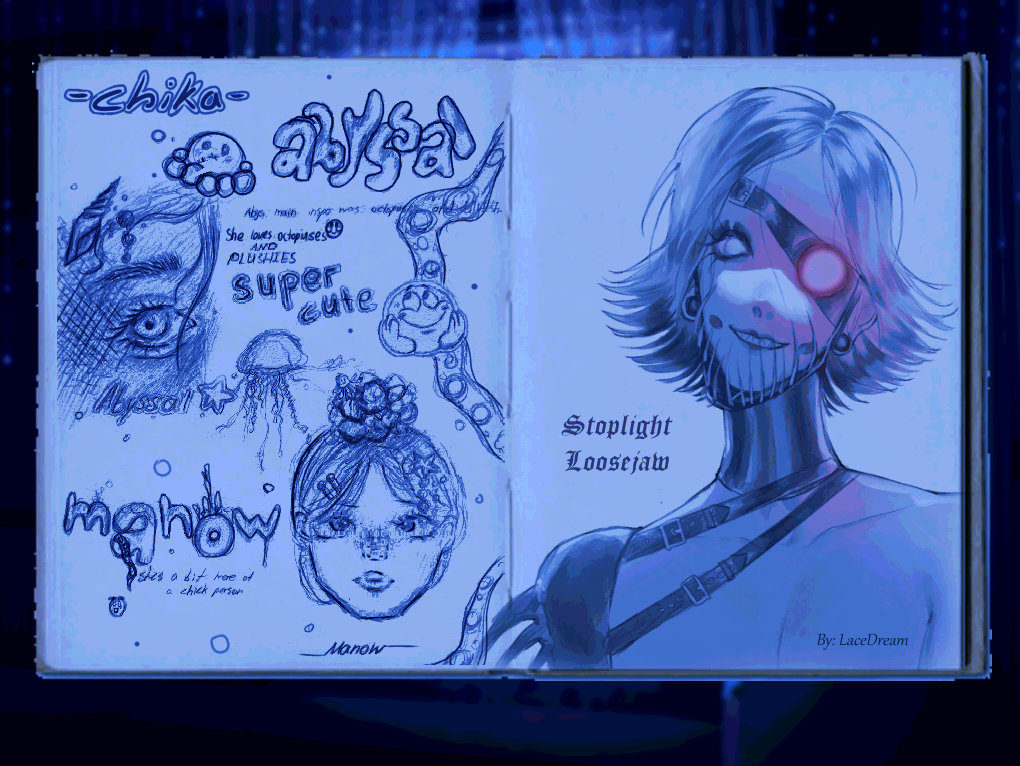 -chika-
abyssal
She loves octopuses
AND
PLUSHIES
super
cute
Abyssal
manow
shes a bit more of
a chick person
Manow
Stoplight
Loosejaw
By: LaceDream